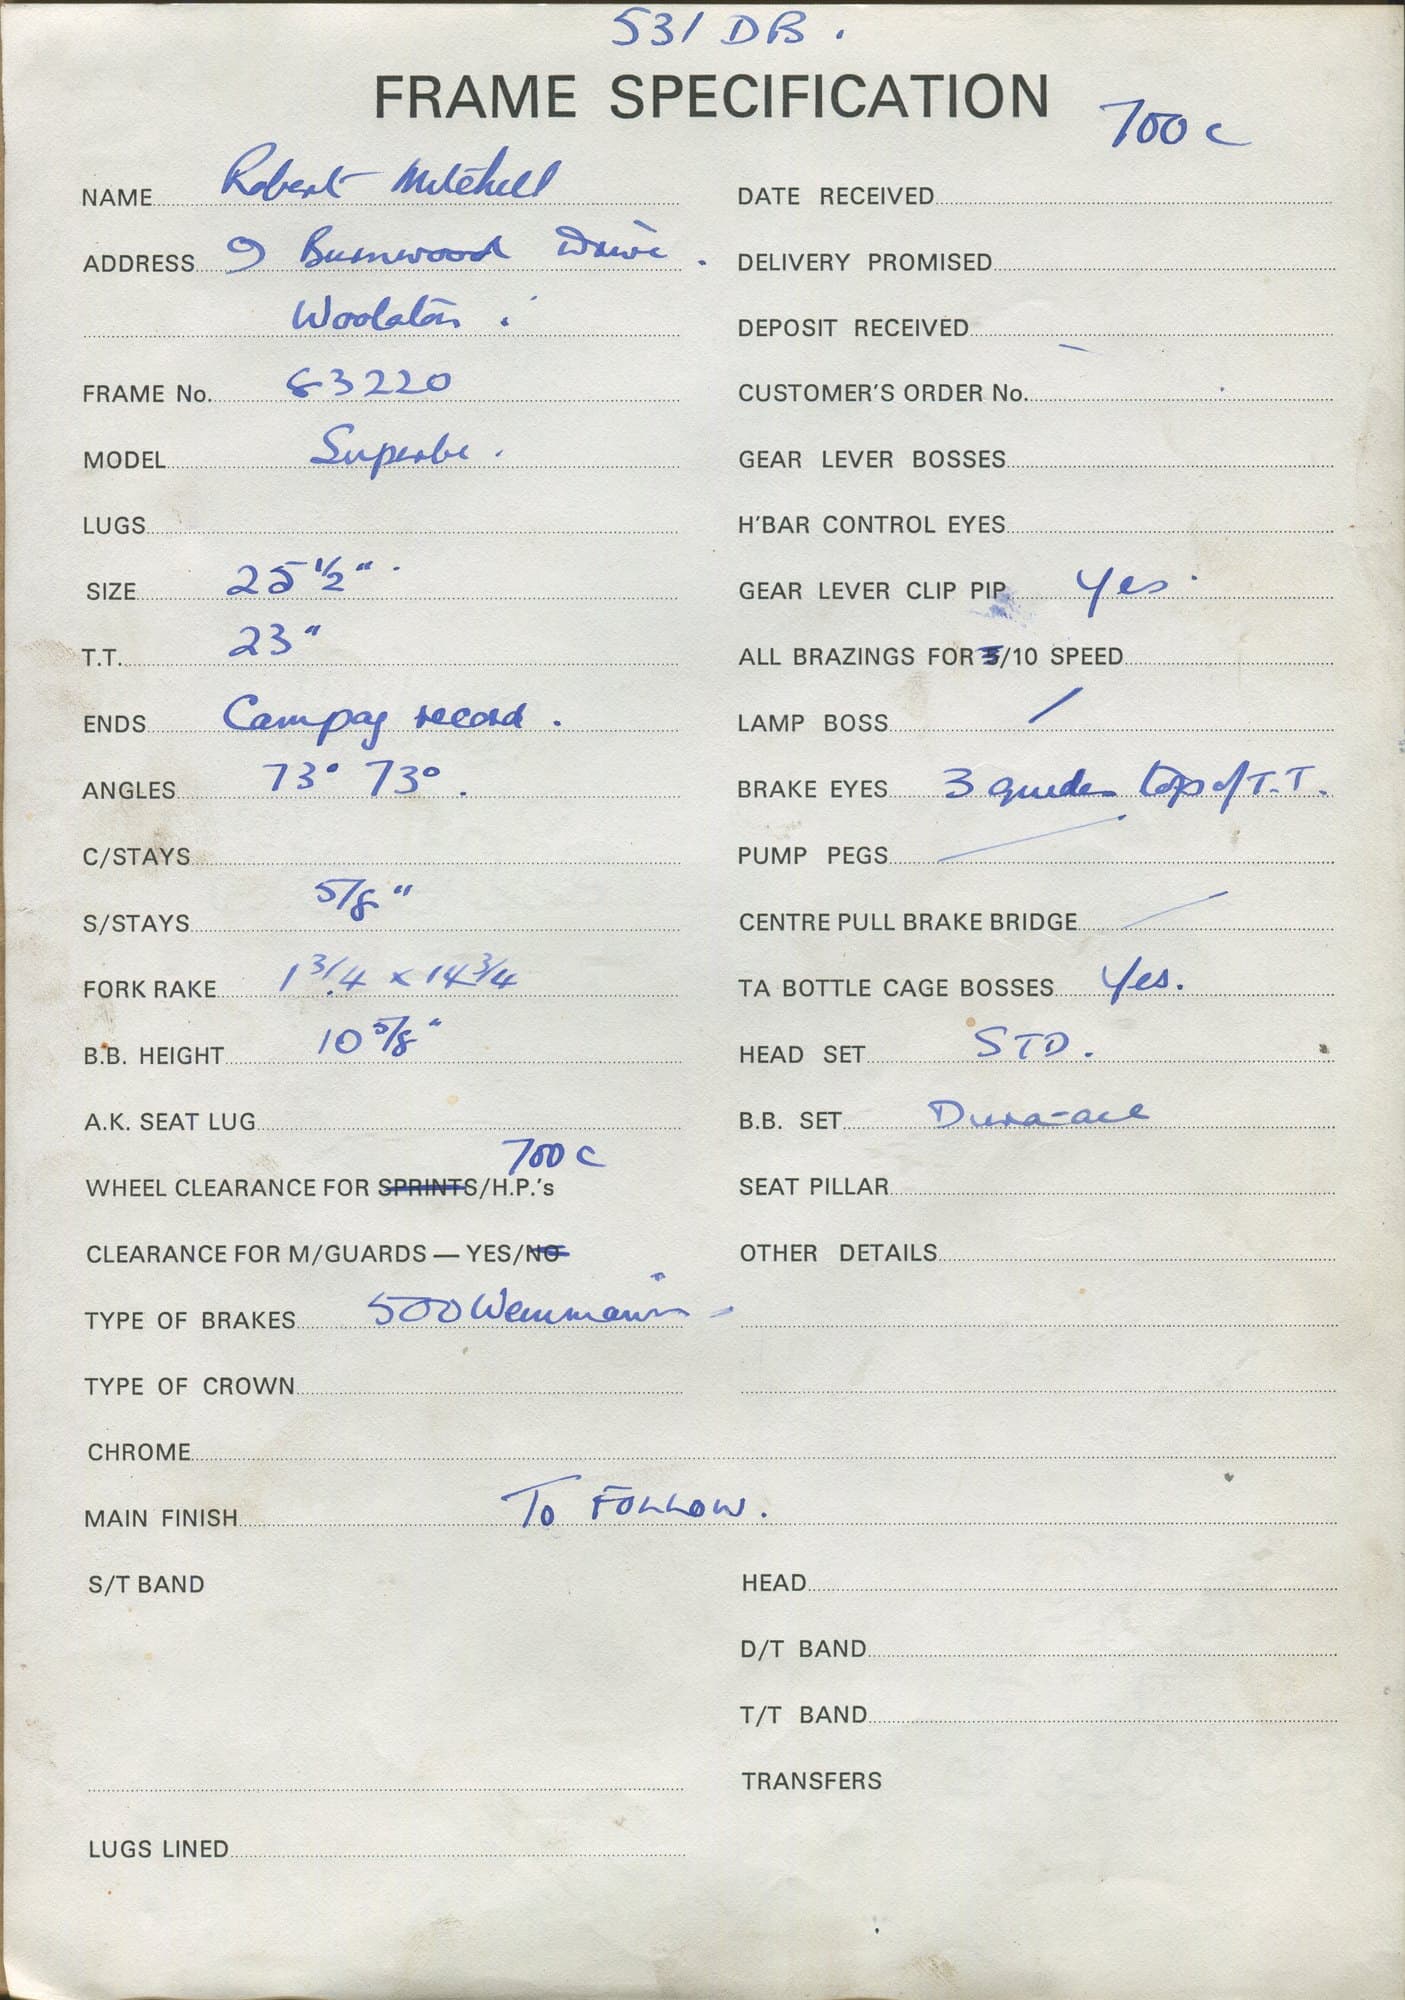 531 DB.
FRAME SPECIFICATION
700 c
NAME Robert Mitchell
ADDRESS 9 Burnwood Drive.
Woolaton.
FRAME No. 83220
MODEL Superbe.
LUGS
SIZE 25 1/2"
T.T. 23"
ENDS Campag record.
ANGLES 73° 73°.
C/STAYS
S/STAYS 5/8"
FORK RAKE 1 3/4 x 14 3/4
B.B. HEIGHT 10 5/8"
A.K. SEAT LUG
700 c
WHEEL CLEARANCE FOR SPRINTS/H.P.'s
CLEARANCE FOR M/GUARDS — YES/NO
TYPE OF BRAKES 500 Weinmann
TYPE OF CROWN
CHROME
MAIN FINISH To FOLLOW.
S/T BAND
LUGS LINED
DATE RECEIVED
DELIVERY PROMISED
DEPOSIT RECEIVED
CUSTOMER'S ORDER No.
GEAR LEVER BOSSES
H'BAR CONTROL EYES
GEAR LEVER CLIP PIP Yes.
ALL BRAZINGS FOR 5/10 SPEED
LAMP BOSS /
BRAKE EYES 3 guides top of T.T.
PUMP PEGS
CENTRE PULL BRAKE BRIDGE
TA BOTTLE CAGE BOSSES Yes.
HEAD SET STD.
B.B. SET Dura-ace
SEAT PILLAR
OTHER DETAILS
HEAD
D/T BAND
T/T BAND
TRANSFERS